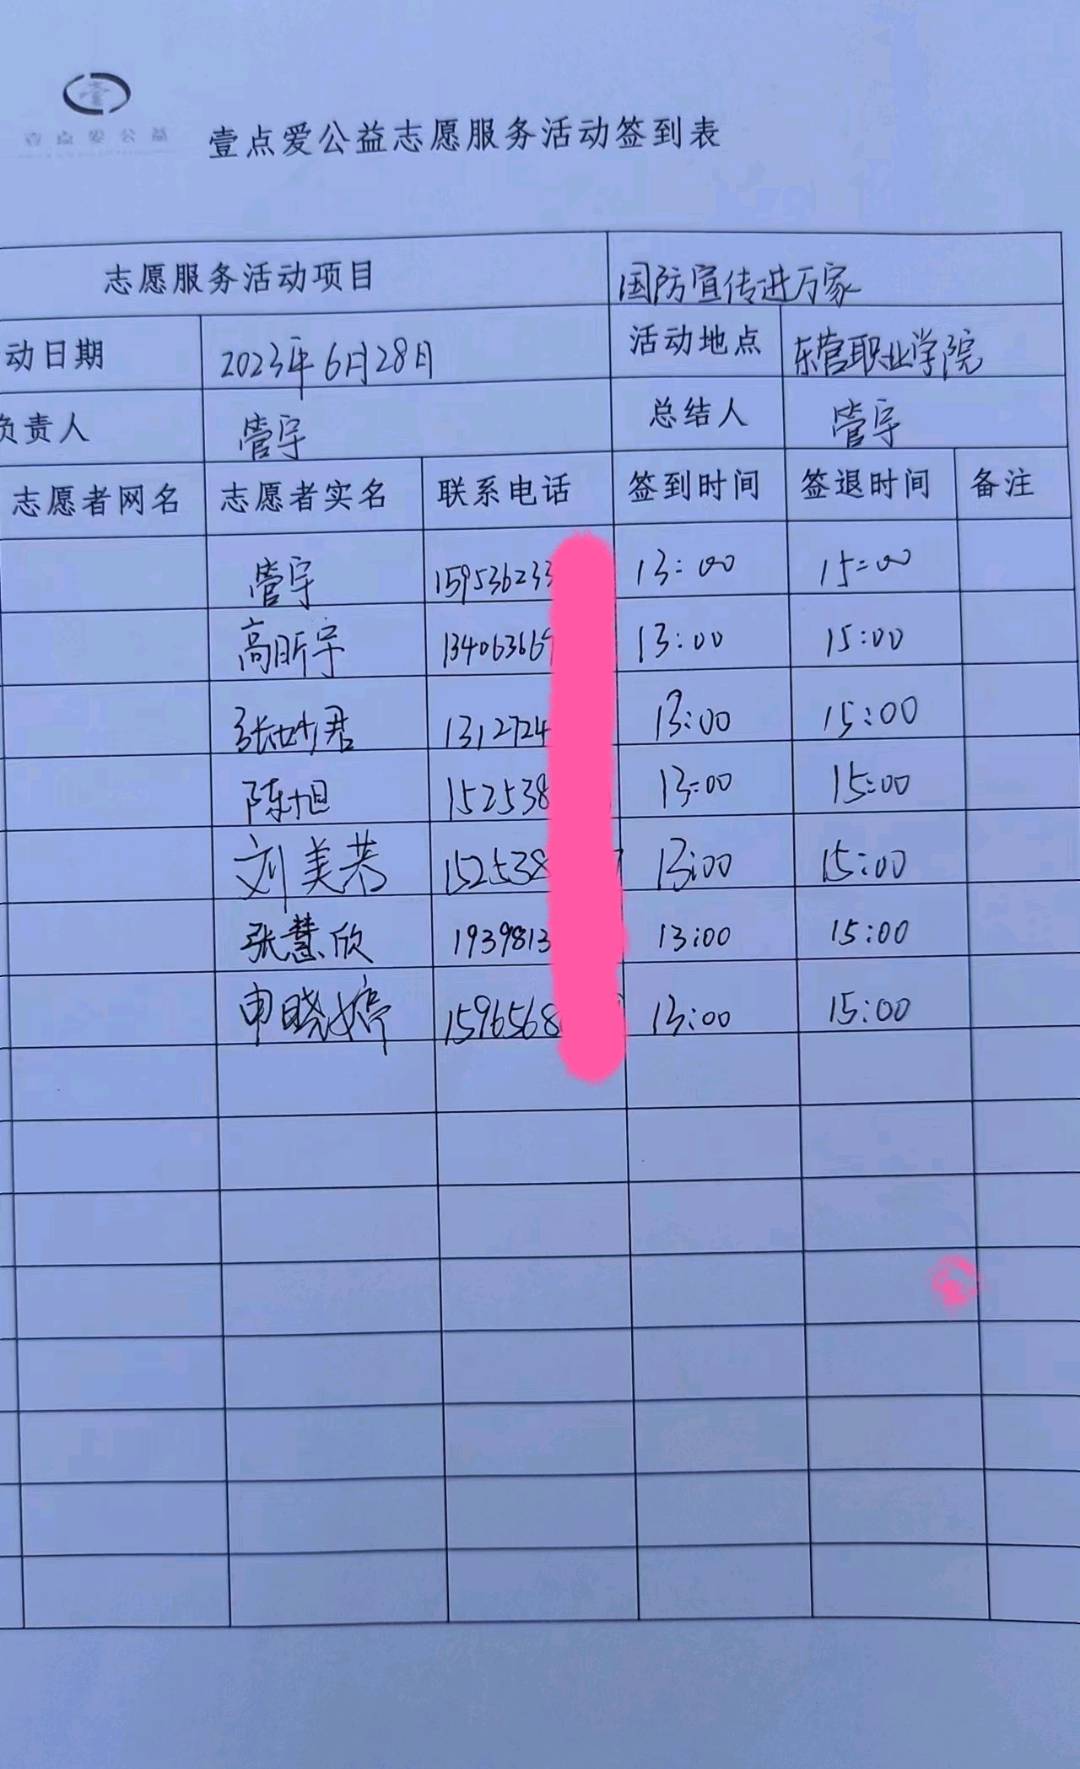 壹点爱公益
壹点爱公益志愿服务活动签到表
志愿服务活动项目 国防宣传进万家
动日期 2023年6月28日 活动地点 东营职业学院
负责人 管宇 总结人 管宇
志愿者网名 志愿者实名 联系电话 签到时间 签退时间 备注
管宇 159536233 13:00 15:00
高昕宇 134063669 13:00 15:00
张妙君 1312724 13:00 15:00
陈旭 152538 13:00 15:00
刘美芳 152538 13:00 15:00
张慧欣 1939813 13:00 15:00
申晓婷 1596568 13:00 15:00